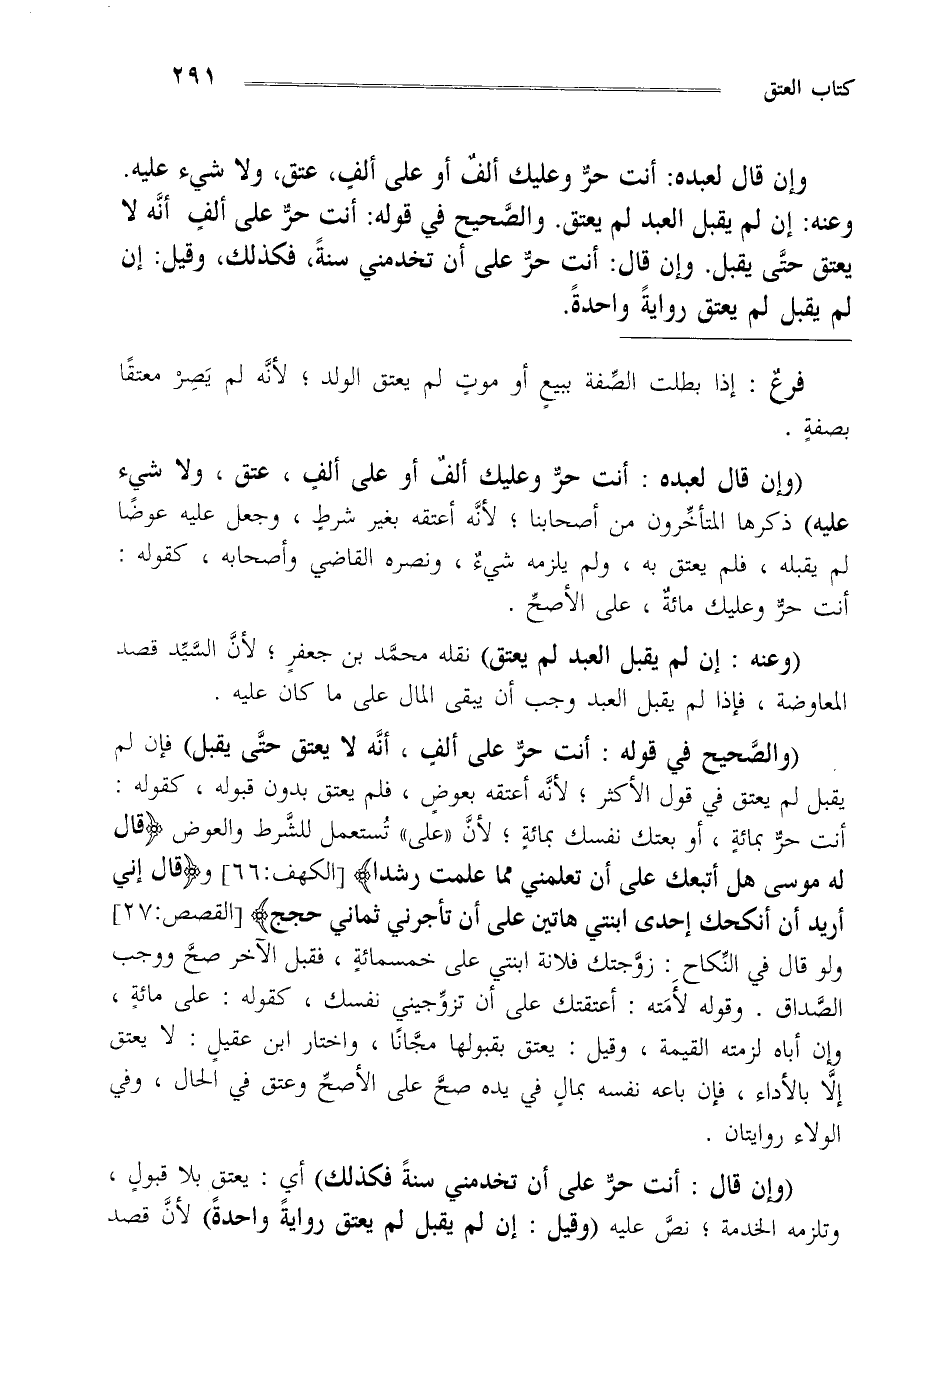 كتاب العتق ٢٩١
وإن قال لعبده: أنت حرٌّ وعليك ألفٌ أو على ألفٍ، عتق، ولا شيء عليه.
وعنه: إن لم يقبل العبد لم يعتق. والصَّحيح في قوله: أنت حرٌّ على ألفٍ أنَّه لا
يعتق حتَّى يقبل. وإن قال: أنت حرٌّ على أن تخدمني سنةً، فكذلك، وقيل: إن
لم يقبل لم يعتق روايةً واحدةً.
فرعٌ : إذا بطلت الصِّفة ببيعٍ أو موتٍ لم يعتق الولد ؛ لأنَّه لم يَصِرْ معتقًا
بصفةٍ .
(وإن قال لعبده : أنت حرٌّ وعليك ألفٌ أو على ألفٍ ، عتق ، ولا شيء
عليه) ذكرها المتأخِّرون من أصحابنا ؛ لأنَّه أعتقه بغير شرطٍ ، وجعل عليه عوضًا
لم يقبله ، فلم يعتق به ، ولم يلزمه شيءٌ ، ونصره القاضي وأصحابه ، كقوله :
أنت حرٌّ وعليك مائةٌ ، على الأصحِّ .
(وعنه : إن لم يقبل العبد لم يعتق) نقله محمَّد بن جعفرٍ ؛ لأنَّ السَّيِّد قصد
المعاوضة ، فإذا لم يقبل العبد وجب أن يبقى المال على ما كان عليه .
(والصَّحيح في قوله : أنت حرٌّ على ألفٍ ، أنَّه لا يعتق حتَّى يقبل) فإن لم
يقبل لم يعتق في قول الأكثر ؛ لأنَّه أعتقه بعوضٍ ، فلم يعتق بدون قبوله ، كقوله :
أنت حرٌّ بمائةٍ ، أو بعتك نفسك بمائةٍ ؛ لأنَّ «على» تُستعمل للشَّرط والعوض ﴿قال
له موسى هل أتبعك على أن تعلمني مما علمت رشدا﴾ [الكهف:٦٦] و﴿قال إني
أريد أن أنكحك إحدى ابنتي هاتين على أن تأجرني ثماني حجج﴾ [القصص:٢٧]
ولو قال في النِّكاح : زوَّجتك فلانة ابنتي على خمسمائةٍ ، فقبل الآخر صحَّ ووجب
الصَّداق . وقوله لأمَته : أعتقتك على أن تزوِّجيني نفسك ، كقوله : على مائةٍ ،
وإن أباه لزمته القيمة ، وقيل : يعتق بقبولها مجَّانًا ، واختار ابن عقيلٍ : لا يعتق
إلَّا بالأداء ، فإن باعه نفسه بمالٍ في يده صحَّ على الأصحِّ وعتق في الحال ، وفي
الولاء روايتان .
(وإن قال : أنت حرٌّ على أن تخدمني سنةً فكذلك) أي : يعتق بلا قبولٍ ،
وتلزمه الخدمة ؛ نصَّ عليه (وقيل : إن لم يقبل لم يعتق روايةً واحدةً) لأنَّ قصد